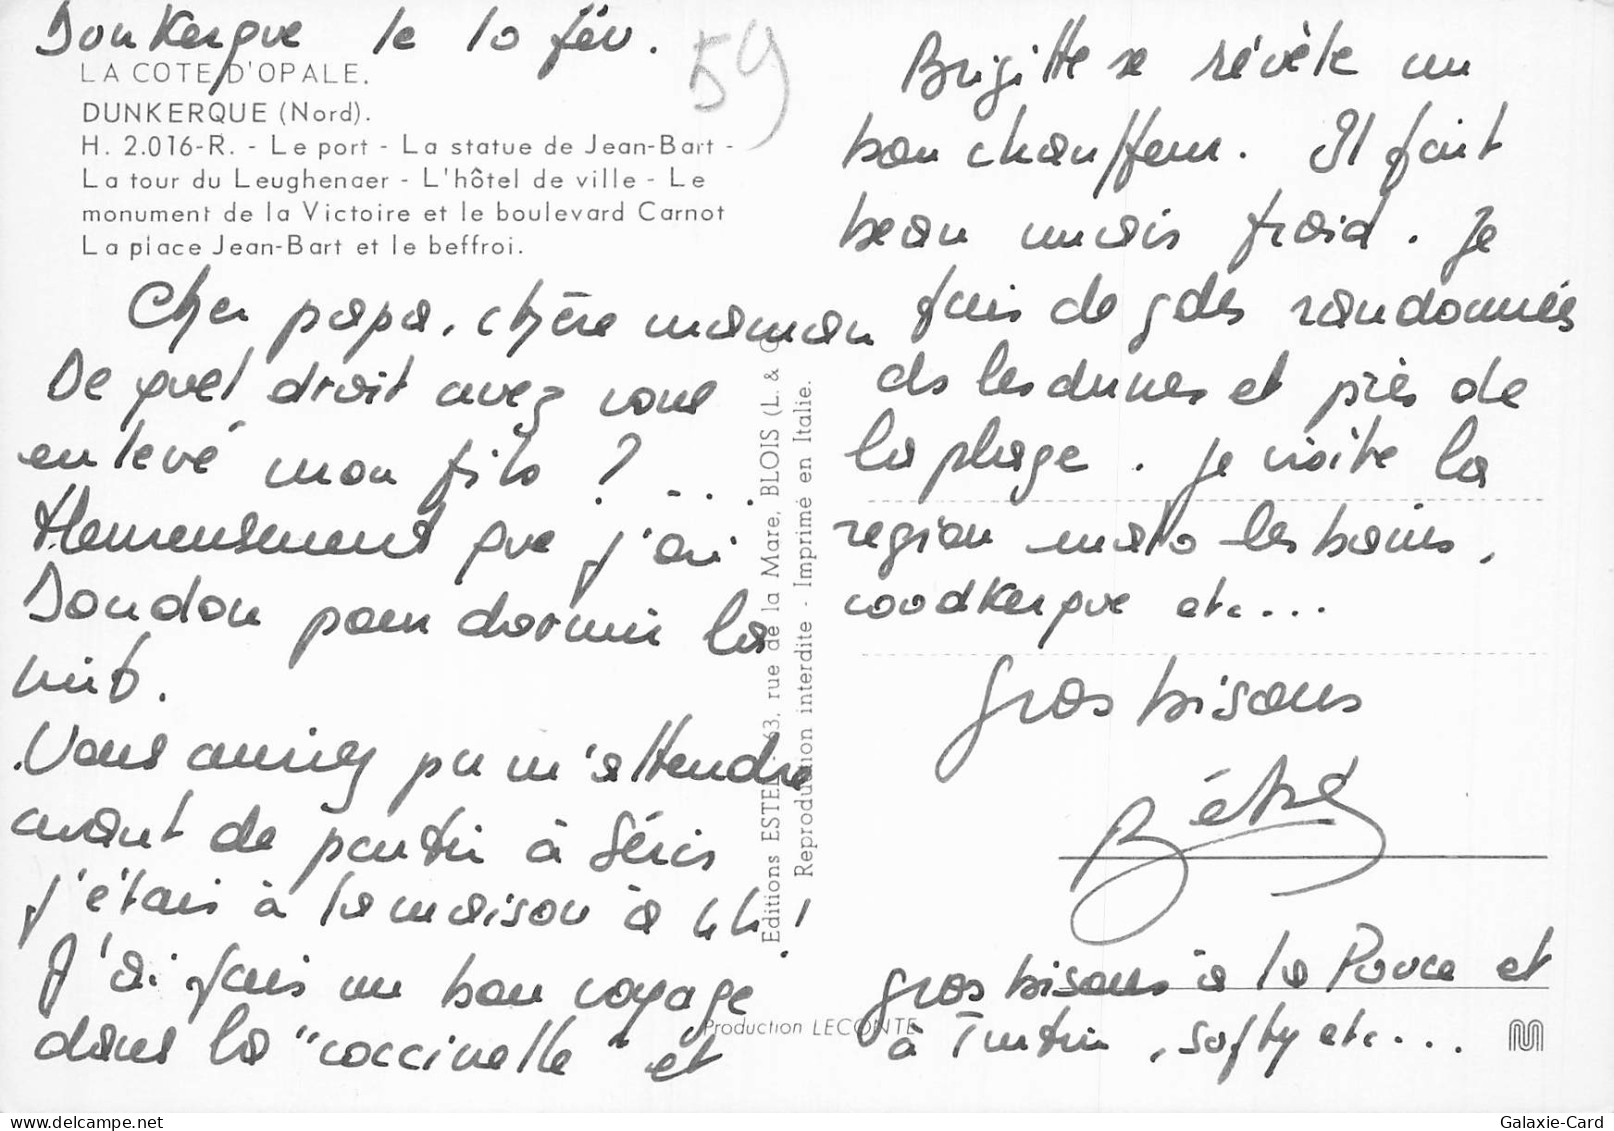 Dunkerque le 10 fév.
59
LA COTE D'OPALE.
DUNKERQUE (Nord).
H. 2.016-R. - Le port - La statue de Jean-Bart -
La tour du Leughenaer - L'hôtel de ville - Le
monument de la Victoire et le boulevard Carnot
La place Jean-Bart et le beffroi.
Cher papa, chère maman
De quel droit avez vous
enlevé mon fils ? ...
Heureusement que j'ai
Doudou pour dormir la
nuit.
Vous auriez pu m'attendre
avant de partir à Séris
j'étais à la maison à 4h !
J'ai fais un bon voyage
dans la "coccinelle" et
Editions ESTEL 63, rue de la Mare, BLOIS (L. & C
Reproduction interdite - Imprimé en Italie.
Production LECONTE
Brigitte se révèle un
bon chauffeur. Il fait
beau mais froid. Je
fais de gdes randonnées
ds les dunes et près de
la plage. Je visite la
region malo les bains,
coodkerque etc...
Gros bisous
gros bisous à la Pouce et
à Tintin, softy etc...
M
Galaxie-Card